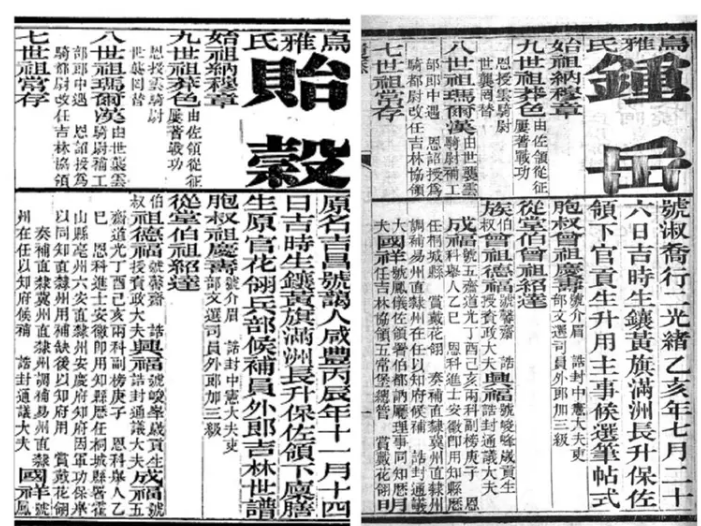 烏雅氏
鍾岳
始祖納穆章
九世祖莽色 由佐領從征
屢著戰功
恩授雲騎尉
世襲罔替
八世祖瑪爾漢 由世襲雲
騎尉補工
部郎中遇 恩詔授為
騎都尉改任吉林協領
七世祖常存
號淑喬行二光緒乙亥年七月二十
六日吉時生鑲黃旗滿洲長升保佐
領下官貢生升用主事候選筆帖式
胞叔曾祖慶壽 號介眉 誥封中憲大夫吏
部文選司員外郎加三級
從堂伯曾祖紹達
族伯叔曾祖德福 號馨齋 誥
授資政大夫 興福 號峻峰歲貢生
誥封通議大夫
成福 號五齋道光丁酉己亥兩科副榜庚子 恩
科舉人乙巳 恩科進士安徽即用知縣歷
任桐城縣 賞戴花翎 奏補直隸冀州直隸州
調補易州直隸州在任以知府候補 誥封通議
大夫 國祥 號鳳儀佐領署伯都訥廳理事同知歷
任吉林協領五常堡總管 賞戴花翎
烏雅氏
貽穀
始祖納穆章
九世祖莽色 由佐領從征
屢著戰功
恩授雲騎尉
世襲罔替
八世祖瑪爾漢 由世襲雲
騎尉補工
部郎中遇 恩詔授為
騎都尉改任吉林協領
七世祖常存
原名吉昌號藹人咸豐丙辰年十一月十四
日吉時生鑲黃旗滿洲長升保佐領下廩膳
生原官花翎兵部候補員外郎吉林世譜
胞叔祖慶壽 號介眉 誥封中憲大夫吏
部文選司員外郎加三級
從堂伯祖紹達
伯叔祖德福 號馨齋 誥
授資政大夫 興福 號峻峰歲貢生
誥封通議大夫 成福 號五
齋道光丁酉己亥兩科副榜庚子 恩科舉人乙
巳 恩科進士安徽即用知縣歷任桐城縣署霍
山縣亳州六安直隸州安慶府知府因軍功保舉
以同知直隸州用補缺後以知府用 賞戴花翎
奏補直隸冀州直隸州調補易州直隸
州在任以知府候補 誥封通議大夫 國祥 號鳳